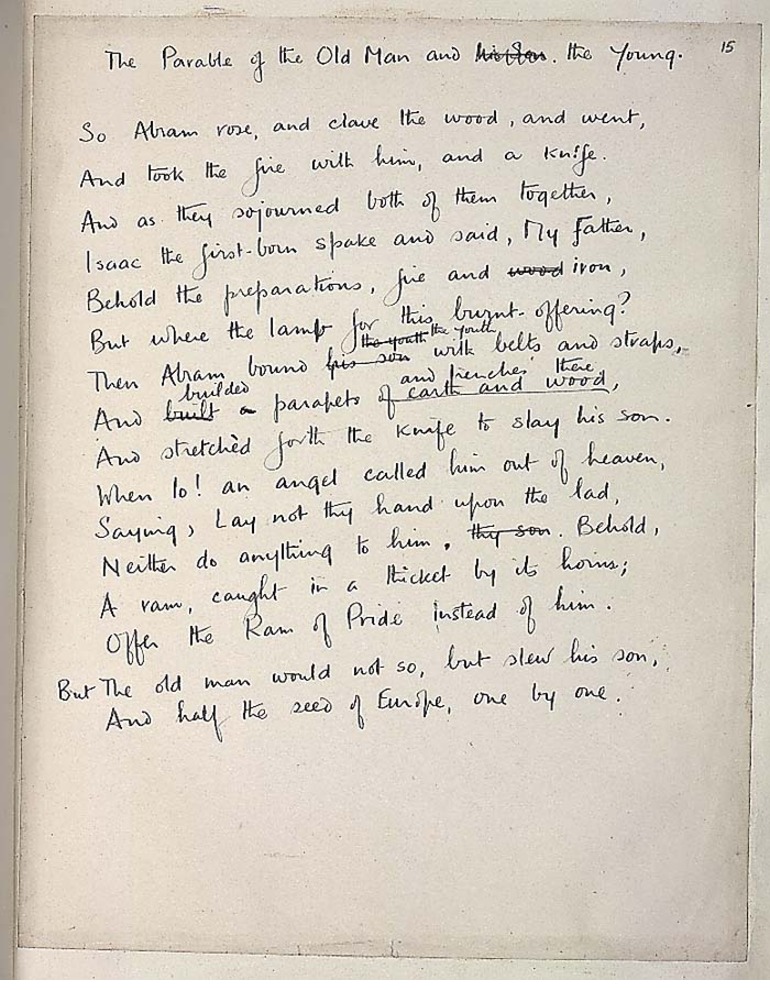 The Parable of the Old Man and his Son. the Young.
15
So Abram rose, and clave the wood, and went,
And took the fire with him, and a knife.
And as they sojourned both of them together,
Isaac the first-born spake and said, My Father,
Behold the preparations, fire and wood iron,
But where the lamb for this burnt-offering?
the youth the youth
Then Abram bound his son with belts and straps,
builded and trenches there,
And built a parapets of earth and wood,
And stretchèd forth the knife to slay his son.
When lo! an angel called him out of heaven,
Saying, Lay not thy hand upon the lad,
Neither do anything to him. thy son. Behold,
A ram, caught in a thicket by its horns;
Offer the Ram of Pride instead of him.
But The old man would not so, but slew his son,
And half the seed of Europe, one by one.